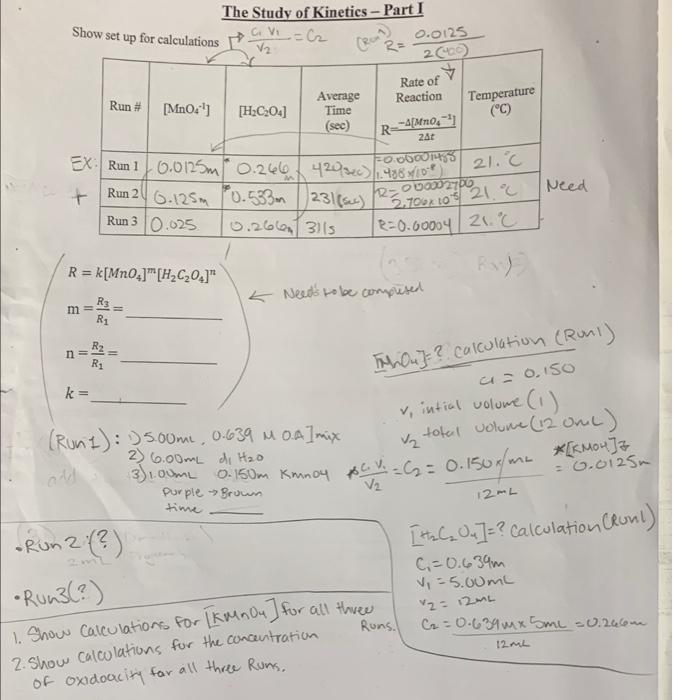 The Study of Kinetics – Part I
Show set up for calculations C1 V1 / V2 = C2 (Run 1) R = 0.0125 / 2(400)
Run # [MnO4-1] [H2C2O4] Average Time (sec) Rate of Reaction R= -Δ[MnO4-1] / 2Δt Temperature (°C)
EX: Run 1 0.0125m 0.266m 420(sec) =0.00001488 1.488x10-5 21.°C
+ Run 2 0.125m 0.533m 231(sec) R= 0.00002700 2.706x10-5 21.°C Need
Run 3 0.025 0.266m 311s R=0.00004 21.°C
R = k[MnO4]m[H2C2O4]n
← Needs to be completed
m = R3 / R1 = ____
n = R2 / R1 = ____
k = ____
[MnO4]=? calculation (Run1)
C1 = 0.150
V1 intial volume (1)
V2 total volume (12.0mL)
*C1V1 / V2 = C2 = 0.150 x 1mL / 12mL *[KMnO4]= 0.0125m
(Run 1): 1) 5.00mL, 0.639 M O.A ] mix
2) 6.00mL di H2O
add 3) 1.00mL 0.150m Kmno4
Purple → Brown
time ____
[H2C2O4]=? Calculation (Run1)
C1=0.639m
V1=5.00mL
V2= 12mL
C2 = 0.639M x 5mL / 12mL = 0.266m
•Run 2:(?)
2mL
•Run3(?)
1. Show Calculations for [KMnO4] for all three Runs.
2. Show calculations for the concantration
of oxidoacity for all three Runs.